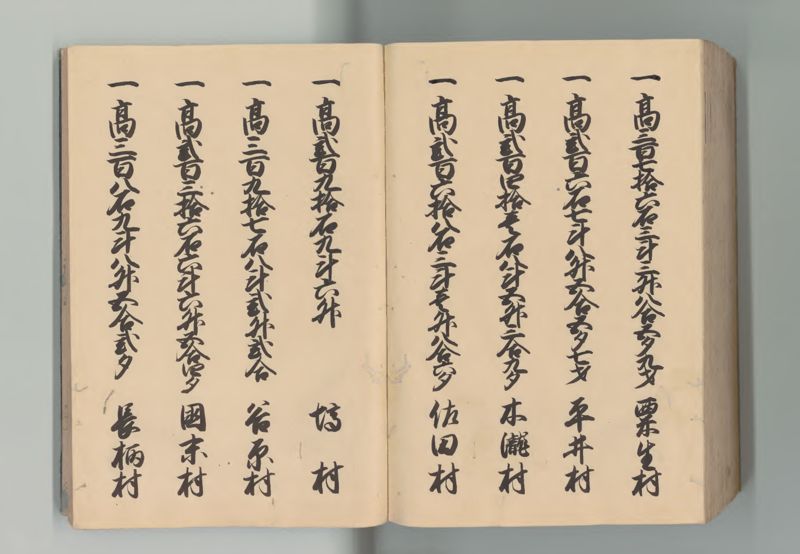 一 高三百七拾六石三斗三升八合五夕九才 粟生村
一 高弐百六石七斗八升五合五夕七才 平井村
一 高弐百四拾壱石八斗五升三合九夕 木瀧村
一 高弐百六拾八石三斗壱升八合六夕 佐田村
一 高弐百九拾石九斗六升 塙村
一 高三百九拾七石八斗弐升弐合 谷原村
一 高弐百三拾六石六斗六升五合四夕 國末村
一 高三百八石九斗八升五合弐夕 長柄村